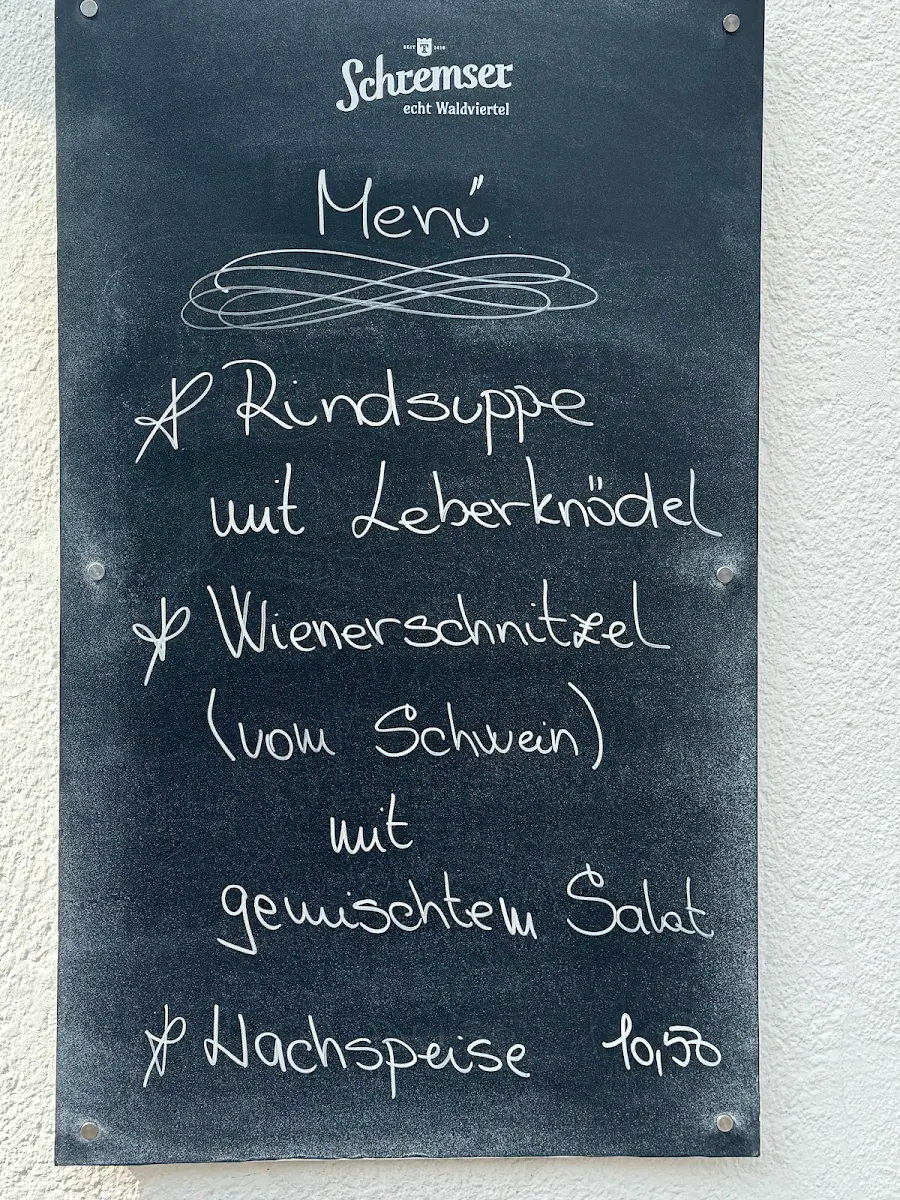 SEIT 1410
Schremser
echt Waldviertel
Menü
Rindsuppe
mit Leberknödel
Wienerschnitzel
(vom Schwein)
mit
gemischtem Salat
Nachspeise 10,50